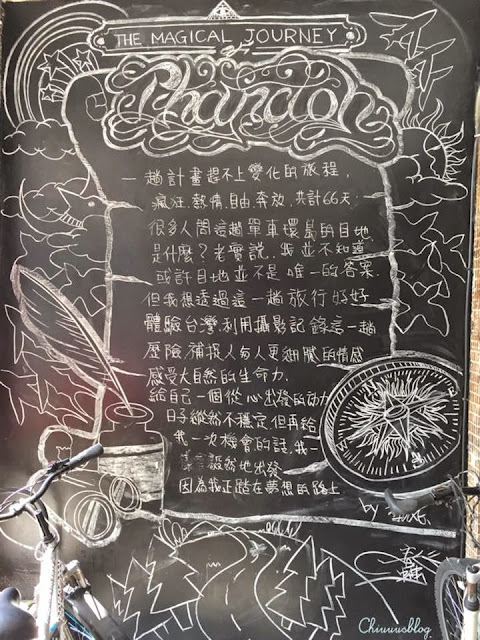 THE MAGICAL JOURNEY
of
一趟計畫趕不上變化的旅程,
瘋狂.熱情.自由.奔放.共計66天.
很多人問這趟單車環島的目地
是什麼？老實說,我並不知道
或許目地並不是唯一的答案.
但我想透過這一趟旅行好好
體驗台灣.利用攝影記錄這一趟
歷險.捕捉人與人更細膩的情感
感受大自然的生命力.
給自己一個從心出發的動力
日子縱然不穩定但再給
我一次機會的話,我一
毅然地出發
因為我正踏在夢想的路上
by
Chiuuusblog